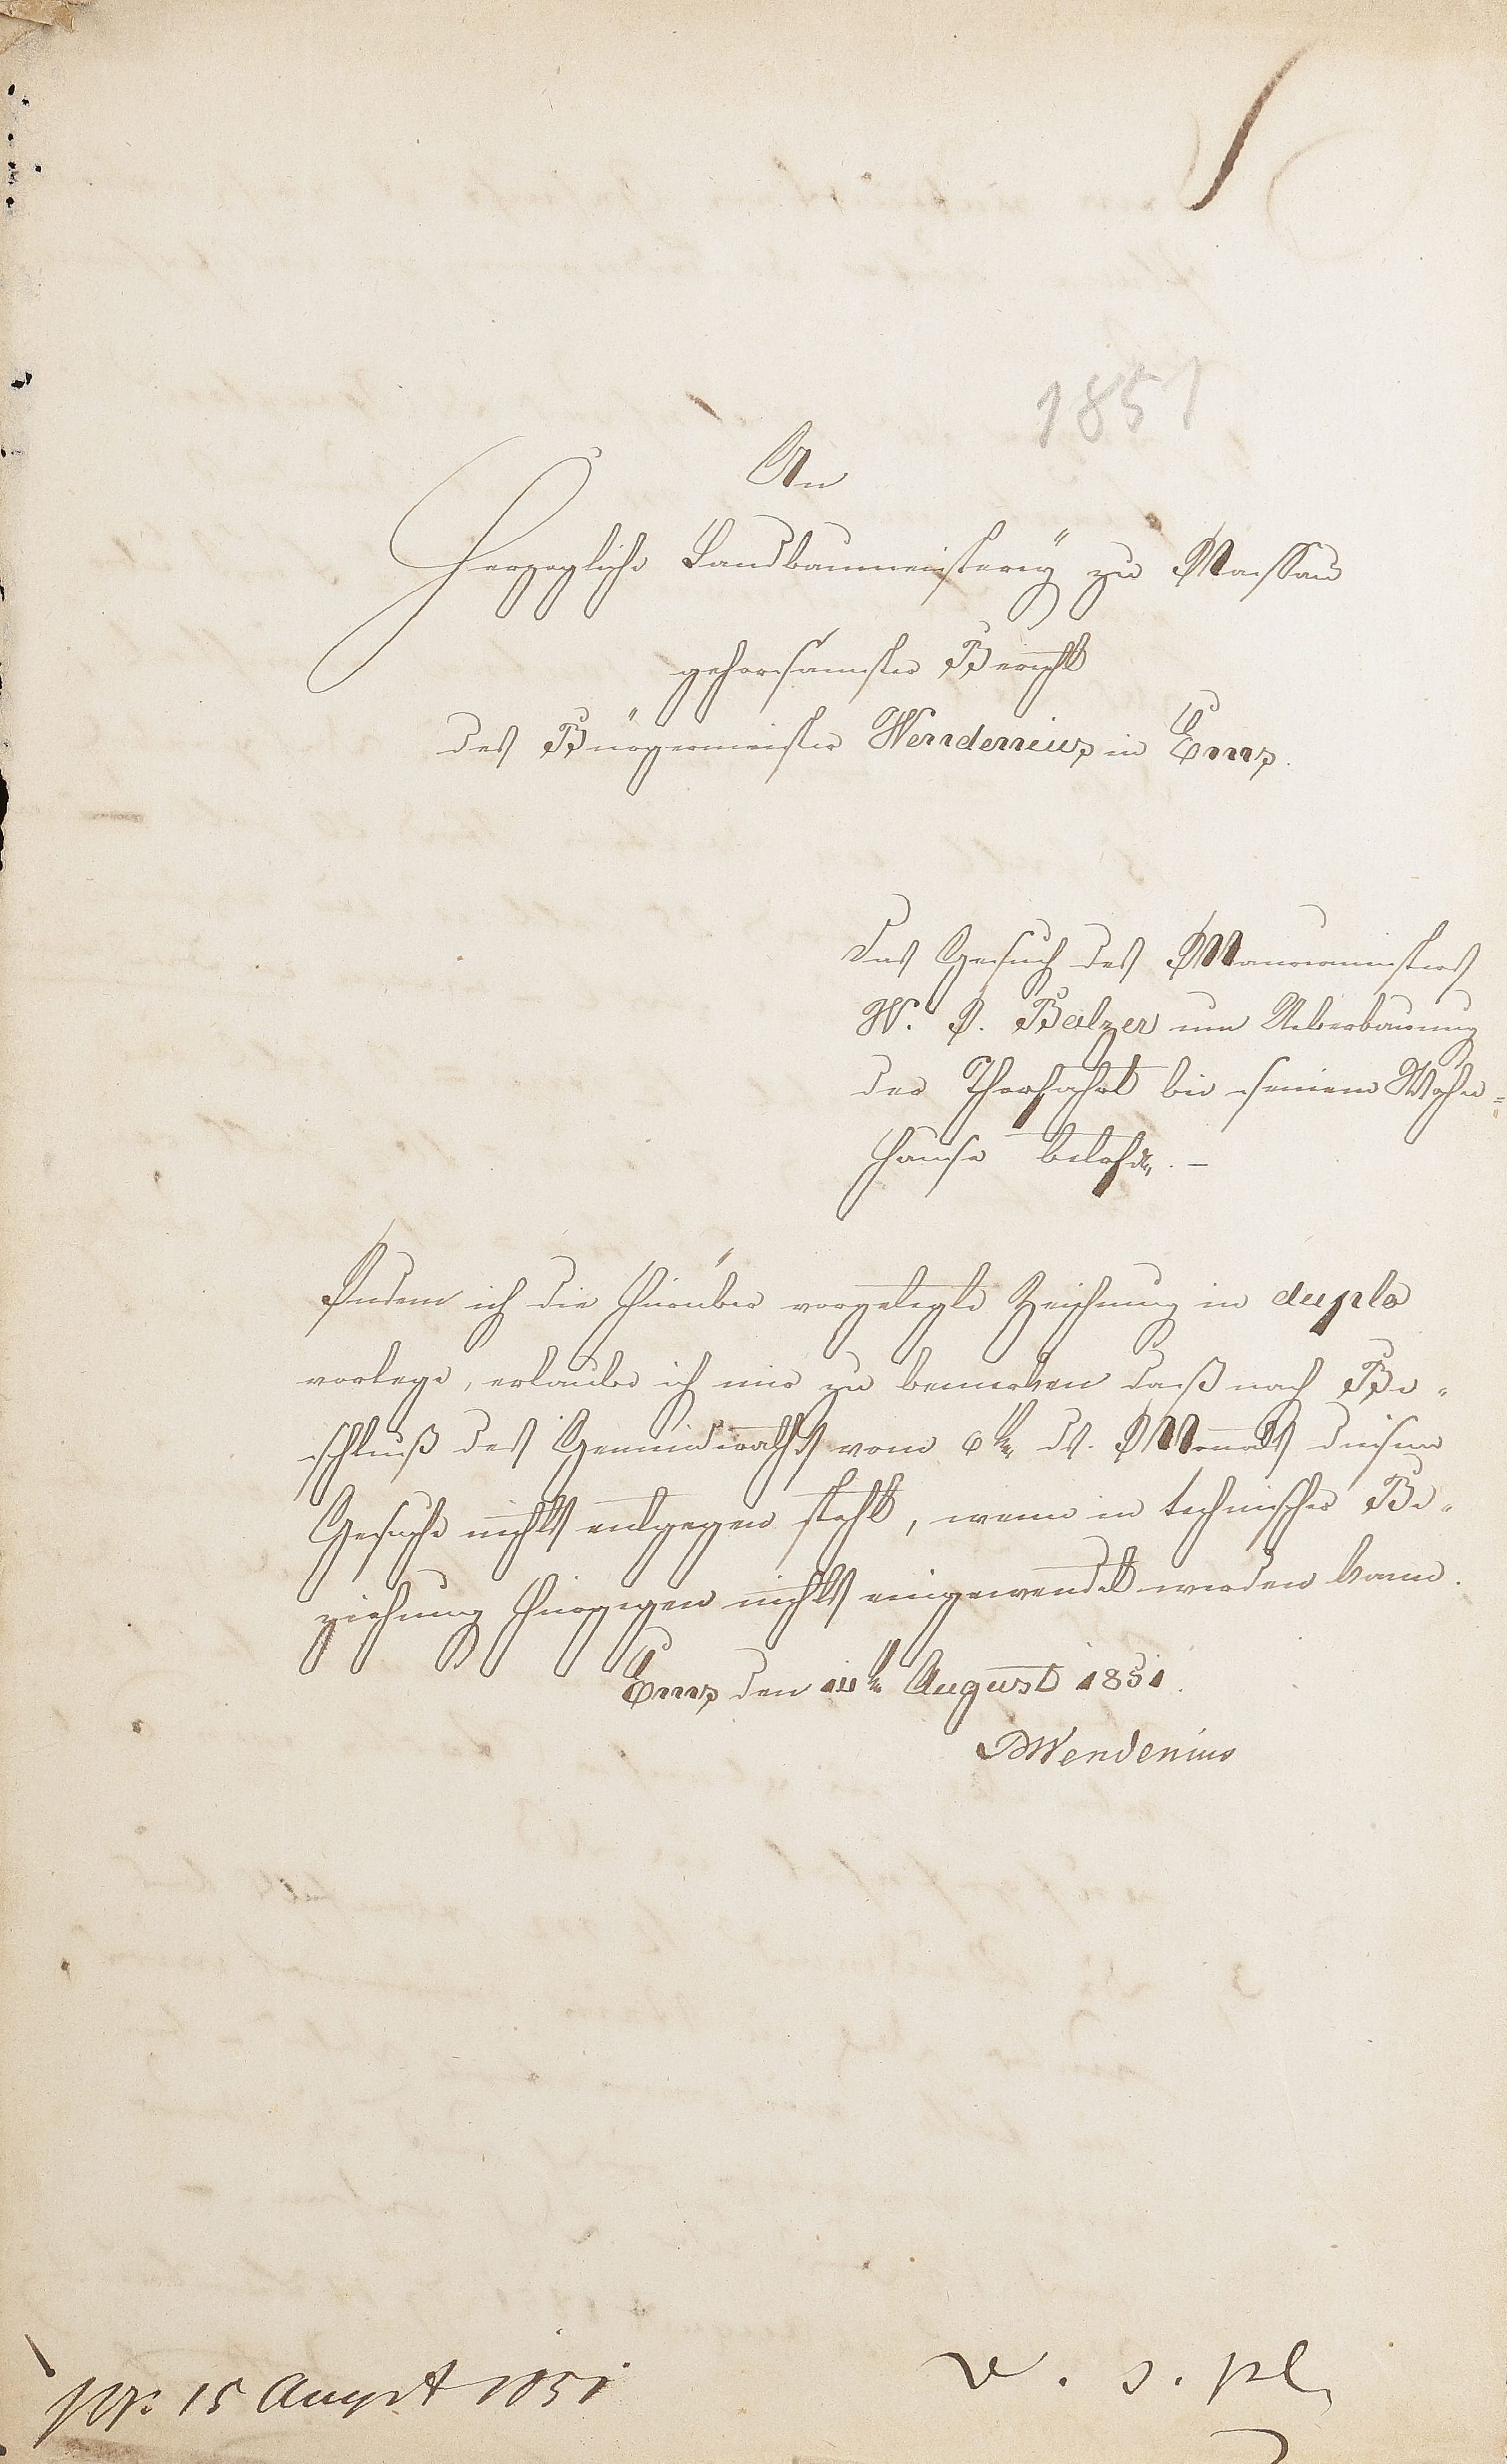 1851
An
Herzogliche Landbaumeisterey zu Nassau
gehorsamster Bericht
des Bürgermeister Wendenius in Ems.
Das Gesuch des Maurermeisters
W. J. Balzer um Ueberbauung
der Thorfahrt bei seinem Wohn=
hause betrfd. –
Indem ich die hierüber vorgelegte Zeichnung in duplo
vorlege, erlaube ich mir zu bemerken daß nach Be-
schluß des Gemeinderathes vom 6ten ds. Monats diesem
Gesuche nichts entgegen steht, wenn in technischer Be-
ziehung hiergegen nichts eingewendet werden kann.
Ems den 11ten August 1851.
Wendenius
15 August 1851
v. s. pl.